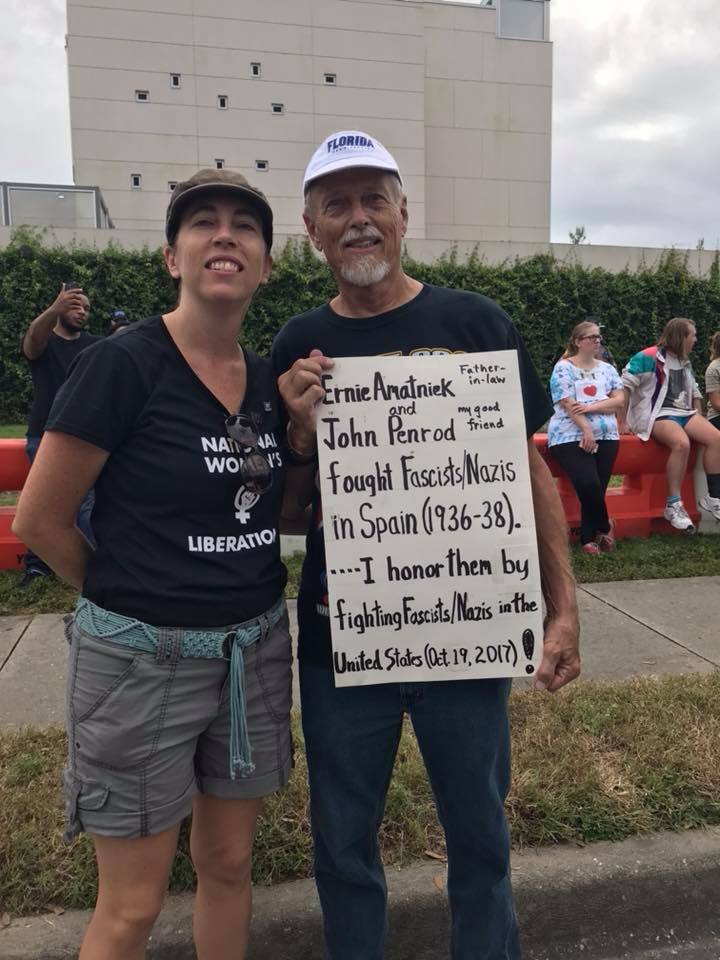 FLORIDA
NATIONAL
WOMEN'S
LIBERATION
Father-
in-law
Ernie Amatniek
and
my good
friend
John Penrod
fought Fascists/Nazis
in Spain (1936-38).
....I honor them by
fighting Fascists/Nazis in the
United States (Oct. 19, 2017)!